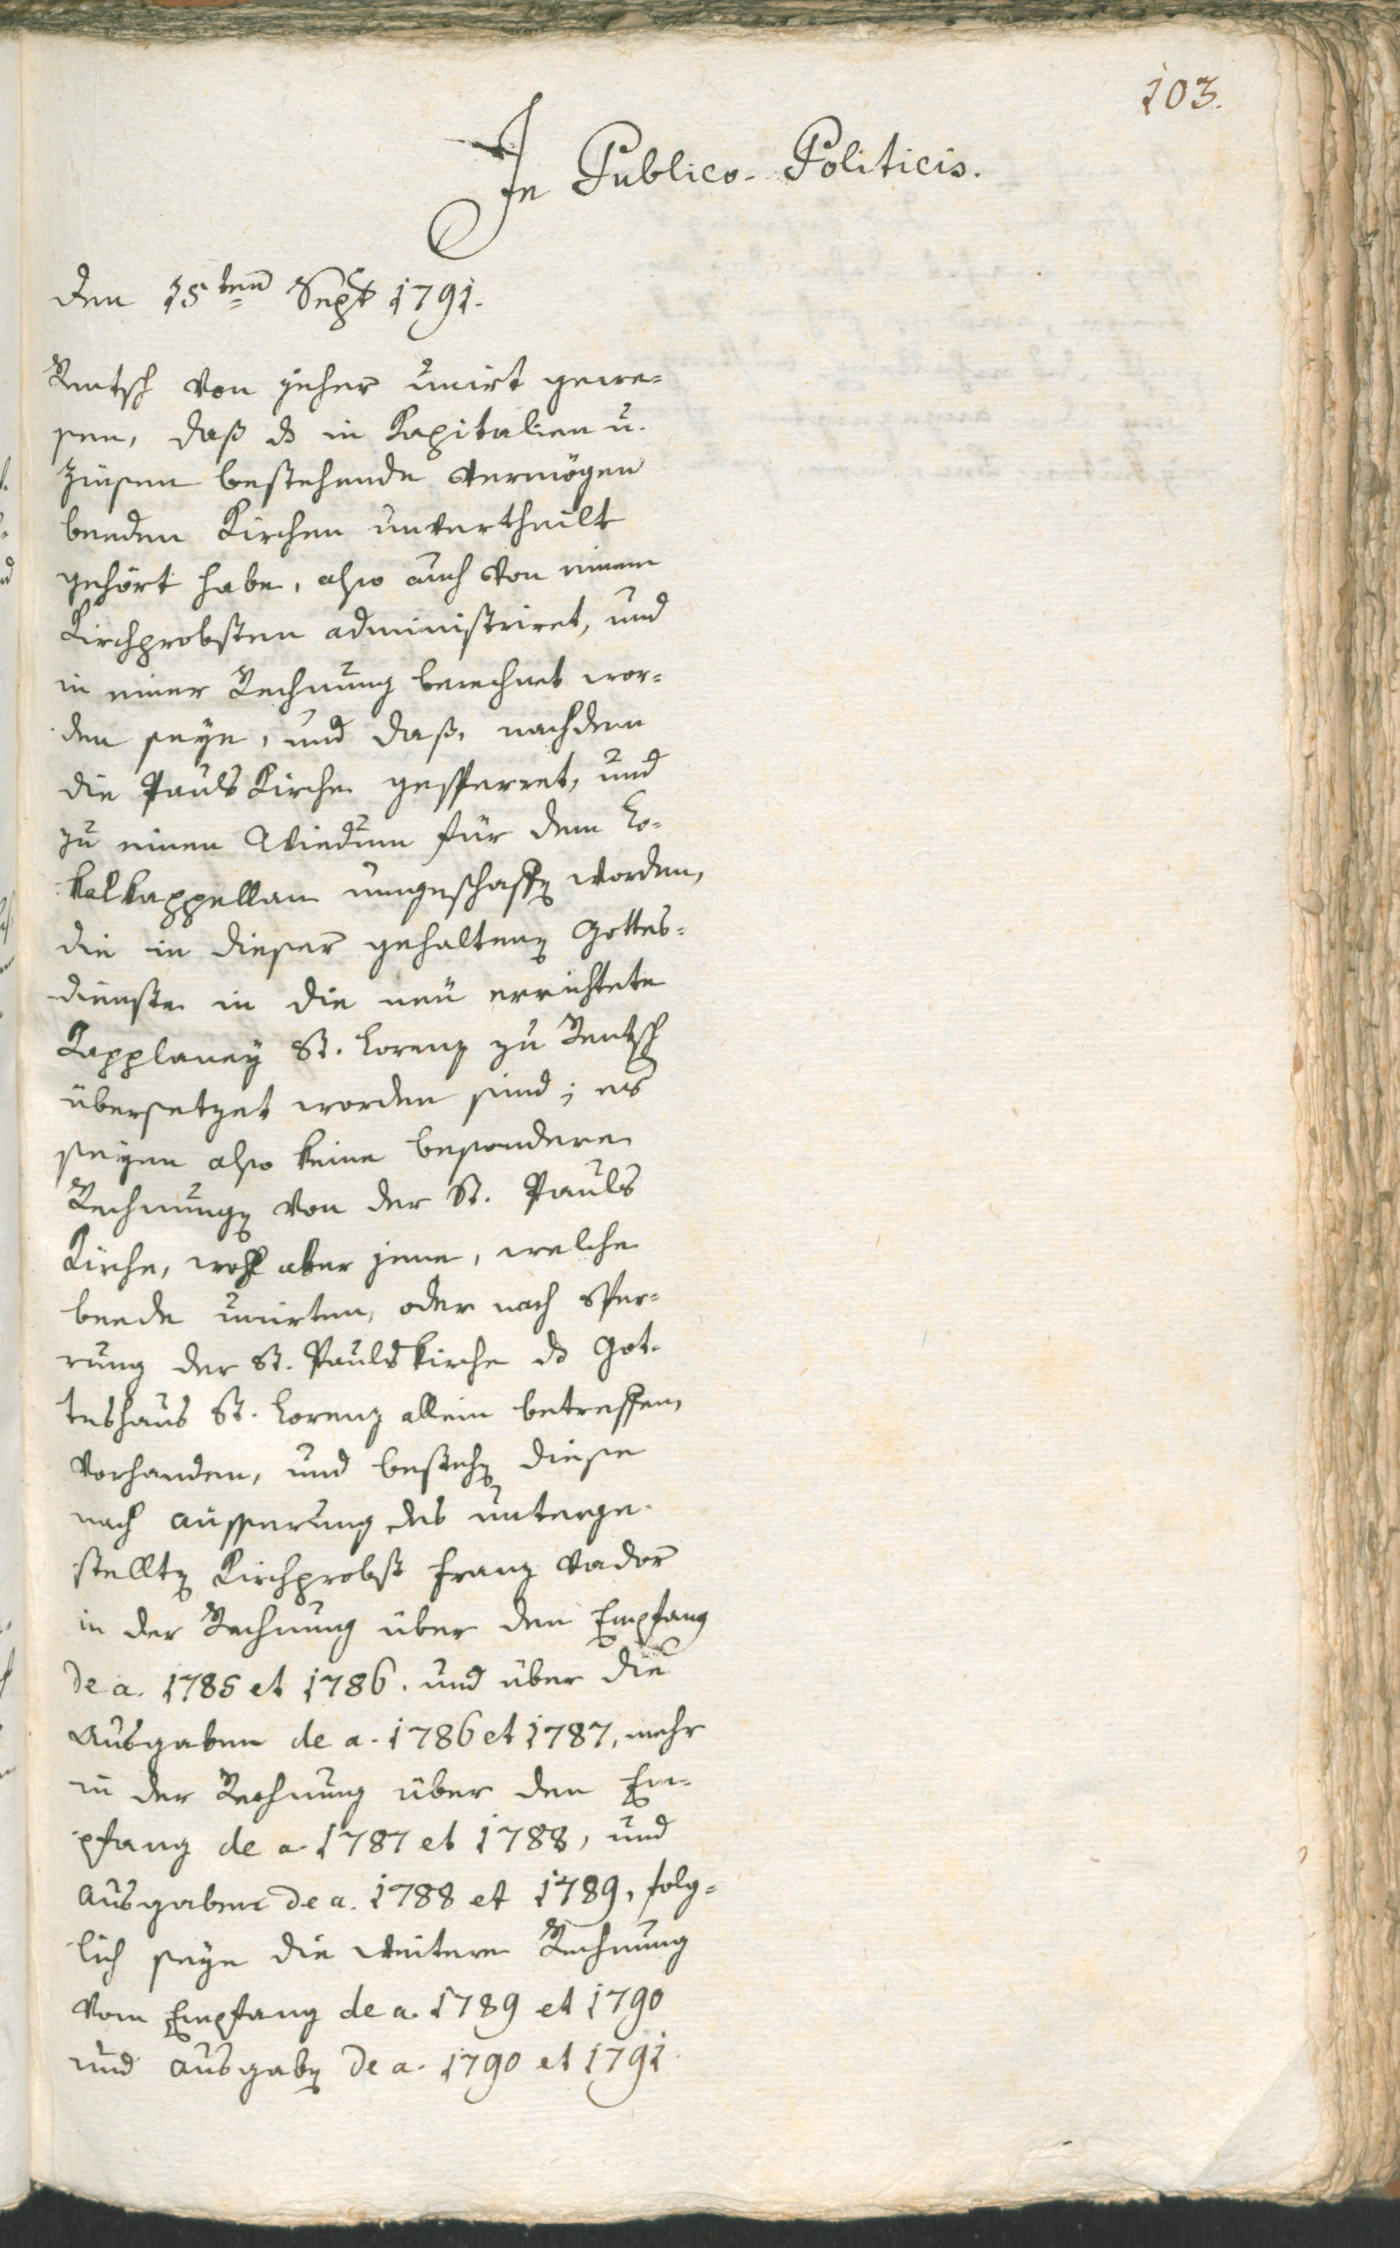 103.
In Publico-Politicis.
den 15ten Sept 1791.
Rentsch von jeher unirt gewe=
sen, daß ds in Kapitalien u.
Zinsen bestehende Vermögen
beeden Kirchen unvertheilt
gehört habe, also auch von einem
Kirchprobsten administriret, und
in einer Rechnung berechnet wor=
den seye, und daß, nachdem
die Pauls Kirche gesperret, und
zu einen Wiedum für dem Lo=
kalkappellan umgeschaffen worden,
die in dieser gehaltenen Gottes=
dienste in die neu errichtete
Kapplaney St. Lorenz zu Rentsch
übersetzet worden sind; es
seyen also keine besondere
Rechnungen von der St. Pauls
Kirche, wohl aber jene, welche
beede unirten, oder nach Sper=
rung der St. Paulskirche ds Got=
teshaus St. Lorenz allein betreffen,
vorhanden, und bestehen diese
nach äusserung des unterge=
stellten Kirchprobst Franz Vador
in der Rechnung über den Empfang
de a. 1785 et 1786. und über die
Ausgaben de a. 1786 et 1787, mehr
in der Rechnung über den Em=
pfang de a. 1787 et 1788, und
Ausgaben de a. 1788 et 1789, folg=
lich seye die weitere Rechnung
vom Empfang de a. 1789 et 1790
und Ausgaben de a. 1790 et 1791.